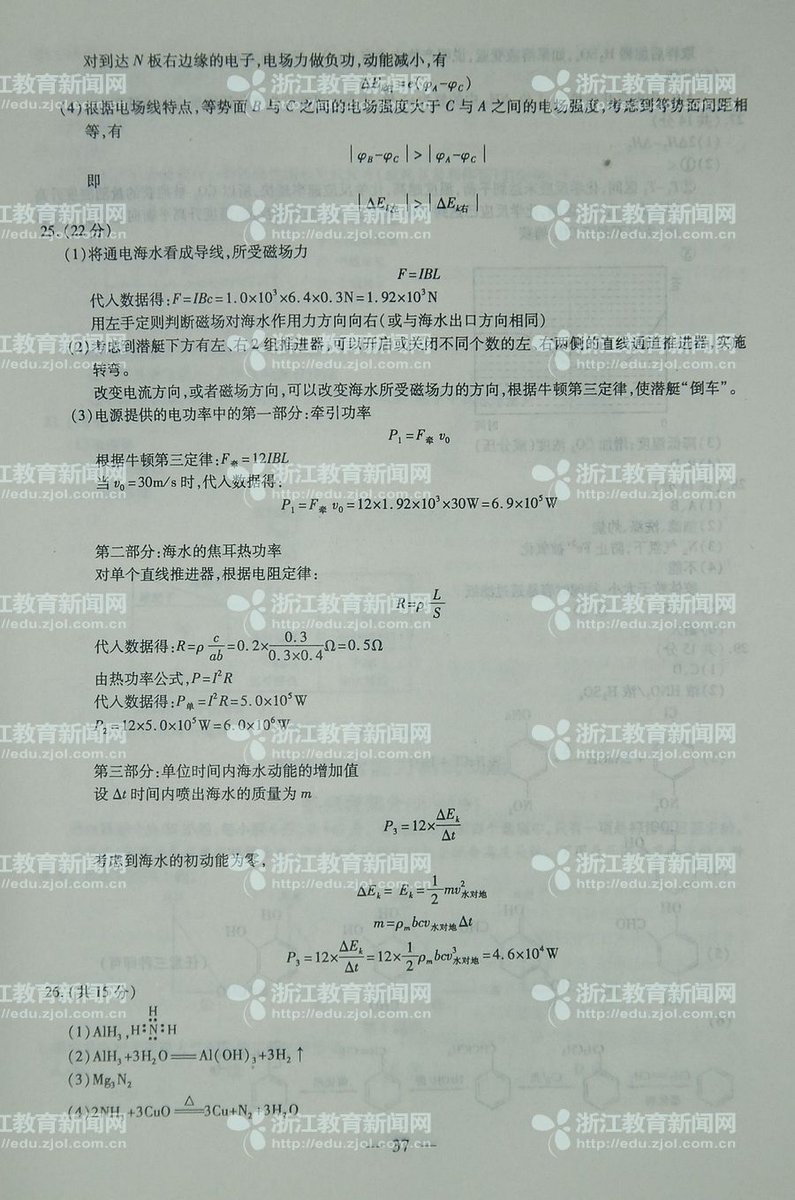 对到达 N 板右边缘的电子,电场力做负功,动能减小,有
ΔEK右=e(φA-φC)
(4)根据电场线特点,等势面 B 与 C 之间的电场强度大于 C 与 A 之间的电场强度,考虑到等势面间距相
等,有
|φB-φC|>|φA-φC|
即
|ΔEK左|>|ΔEK右|
25.(22分)
(1)将通电海水看成导线,所受磁场力
F=IBL
代入数据得:F=IBc=1.0×10³×6.4×0.3N=1.92×10³N
用左手定则判断磁场对海水作用力方向向右(或与海水出口方向相同)
(2)考虑到潜艇下方有左、右2组推进器,可以开启或关闭不同个数的左、右两侧的直线通道推进器,实施
转弯。
改变电流方向,或者磁场方向,可以改变海水所受磁场力的方向,根据牛顿第三定律,使潜艇“倒车”。
(3)电源提供的电功率中的第一部分:牵引功率
P1=F牵 v0
根据牛顿第三定律:F牵=12IBL
当 v0=30m/s 时,代入数据得:
P1=F牵 v0=12×1.92×10³×30W=6.9×10⁵W
第二部分:海水的焦耳热功率
对单个直线推进器,根据电阻定律:
R=ρ L/S
代入数据得:R=ρ c/ab=0.2× 0.3/0.3×0.4 Ω=0.5Ω
由热功率公式,P=I²R
代入数据得:P单=I²R=5.0×10⁵W
P2=12×5.0×10⁵W=6.0×10⁶W
第三部分:单位时间内海水动能的增加值
设 Δt 时间内喷出海水的质量为 m
P3=12× ΔEk/Δt
考虑到海水的初动能为零,
ΔEk=Ek=1/2 mv²水对地
m=ρm bcv水对地Δt
P3=12× ΔEk/Δt=12× 1/2 ρm bcv³水对地=4.6×10⁴W
26.(共15分)
(1)AlH3,H:N:H
H
(2)AlH3+3H2O══Al(OH)3+3H2↑
(3)Mg3N2
(4)2NH3+3CuO ══△ 3Cu+N2+3H2O
— 37 —
浙江教育新闻网
http://edu.zjol.com.cn